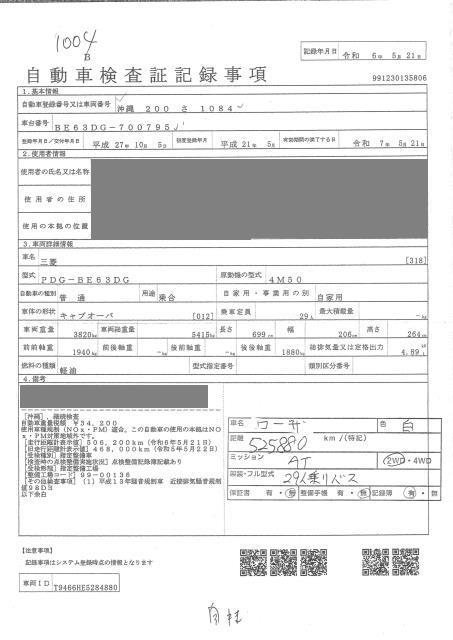 1004
B
記録年月日 令和 6年 5月 21日
自動車検査証記録事項
991230135806
1.基本情報
自動車登録番号又は車両番号 沖縄 200 さ 1084
車台番号 BE63DG-700795
登録年月日/交付年月日 平成 27年 10月 5日 初度登録年月 平成 21年 5月 有効期間の満了する日 令和 7年 5月 21日
2.使用者情報
使用者の氏名又は名称
使用者の住所
使用の本拠の位置
3.車両詳細情報
車名 三菱 [318]
型式 PDG-BE63DG 原動機の型式 4M50
自動車の種別 普通 用途 乗合 自家用・事業用の別 自家用
車体の形状 キャブオーバ [012] 乗車定員 29人 最大積載量 -kg
車両重量 3820kg 車両総重量 5415kg 長さ 699cm 幅 206cm 高さ 264cm
前前軸重 1940kg 前後軸重 -kg 後前軸重 -kg 後後軸重 1880kg 総排気量又は定格出力 4.89L
燃料の種類 軽油 型式指定番号 類別区分番号
4.備考
[沖縄],継続検査
自動車重量税額 ¥34,200
使用車種規制(NOx・PM)適合,この自動車の使用の本拠はNO
x・PM対策地域外です。
[走行距離計表示値]506,200km(令和6年5月21日)
[旧走行距離計表示値]468,000km(令和5年5月22日)
[受検種別]指定整備車
[検査時の点検整備実施状況]点検整備記録簿記載あり
[受検形態]指定整備工場
[整備工場コード]99-00136
[その他検査事項](1)平成13年騒音規制車 近接排気騒音規制
値98DB
以下余白
車名 ローザ 色 白
距離 525880 km/(特記)
ミッション AT 2WD・4WD
架装・フル型式 29人乗りバス
保証書 有・無 整備手帳 有・無 記録簿 有・無
【注意事項】
記録事項はシステム登録時点の情報となります
車両ID T9466HE5284880